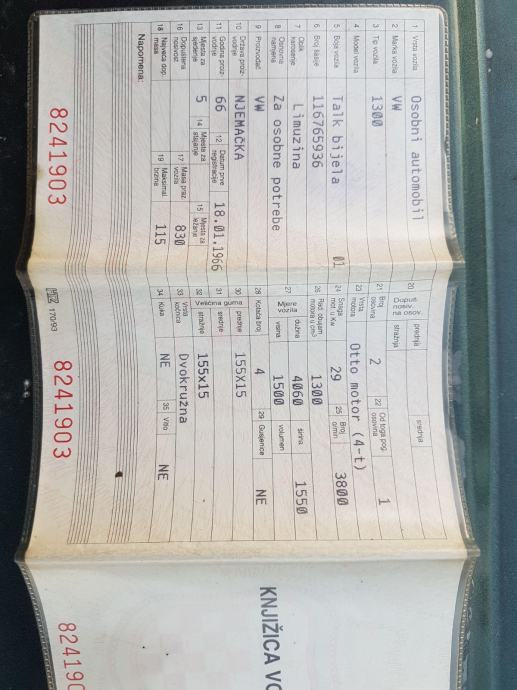 1 Vrsta vozila Osobni automobil
2 Marka vozila VW
3 Tip vozila 1300
4 Model vozila
5 Boja vozila Talk bijela 01
6 Broj šasije 116765936
7 Oblik karoserije Limuzina
8 Osnovna namjena Za osobne potrebe
9 Proizvođač VW
10 Država proizvodnje NJEMAČKA
11 Godina proizvodnje 66 12 Datum prve registracije 18.01.1966
13 Mjesta za sjedenje 5 14 Mjesta za stajanje 15 Mjesta za ležanje
16 Dopuštena nosivost 17 Masa praz. vozila 830
18 Najveća dop. masa 19 Maksimal. brzina 115
Napomena:
8241903
20 Dopuš. nosiv. na osov. prednja srednja
stražnja
21 Broj osovina 2 22 Od toga pog. osovina 1
23 Vrsta motora Otto motor (4-t)
24 Snaga mot. u Kw 29 25 Broj o/min 3800
26 Rad. obujam motora u cm3 1300
27 Mjere vozila dužina 4060 širina 1550
visina 1500 volumen
28 Kotača broj 4 29 Gusjenice NE
30 Veličina guma prednje 155x15
31 srednje
32 stražnje 155x15
33 Vrsta kočnica Dvokružna
34 Kuka NE 35 Vitlo NE
170/93
8241903
KNJIŽICA VO
824190